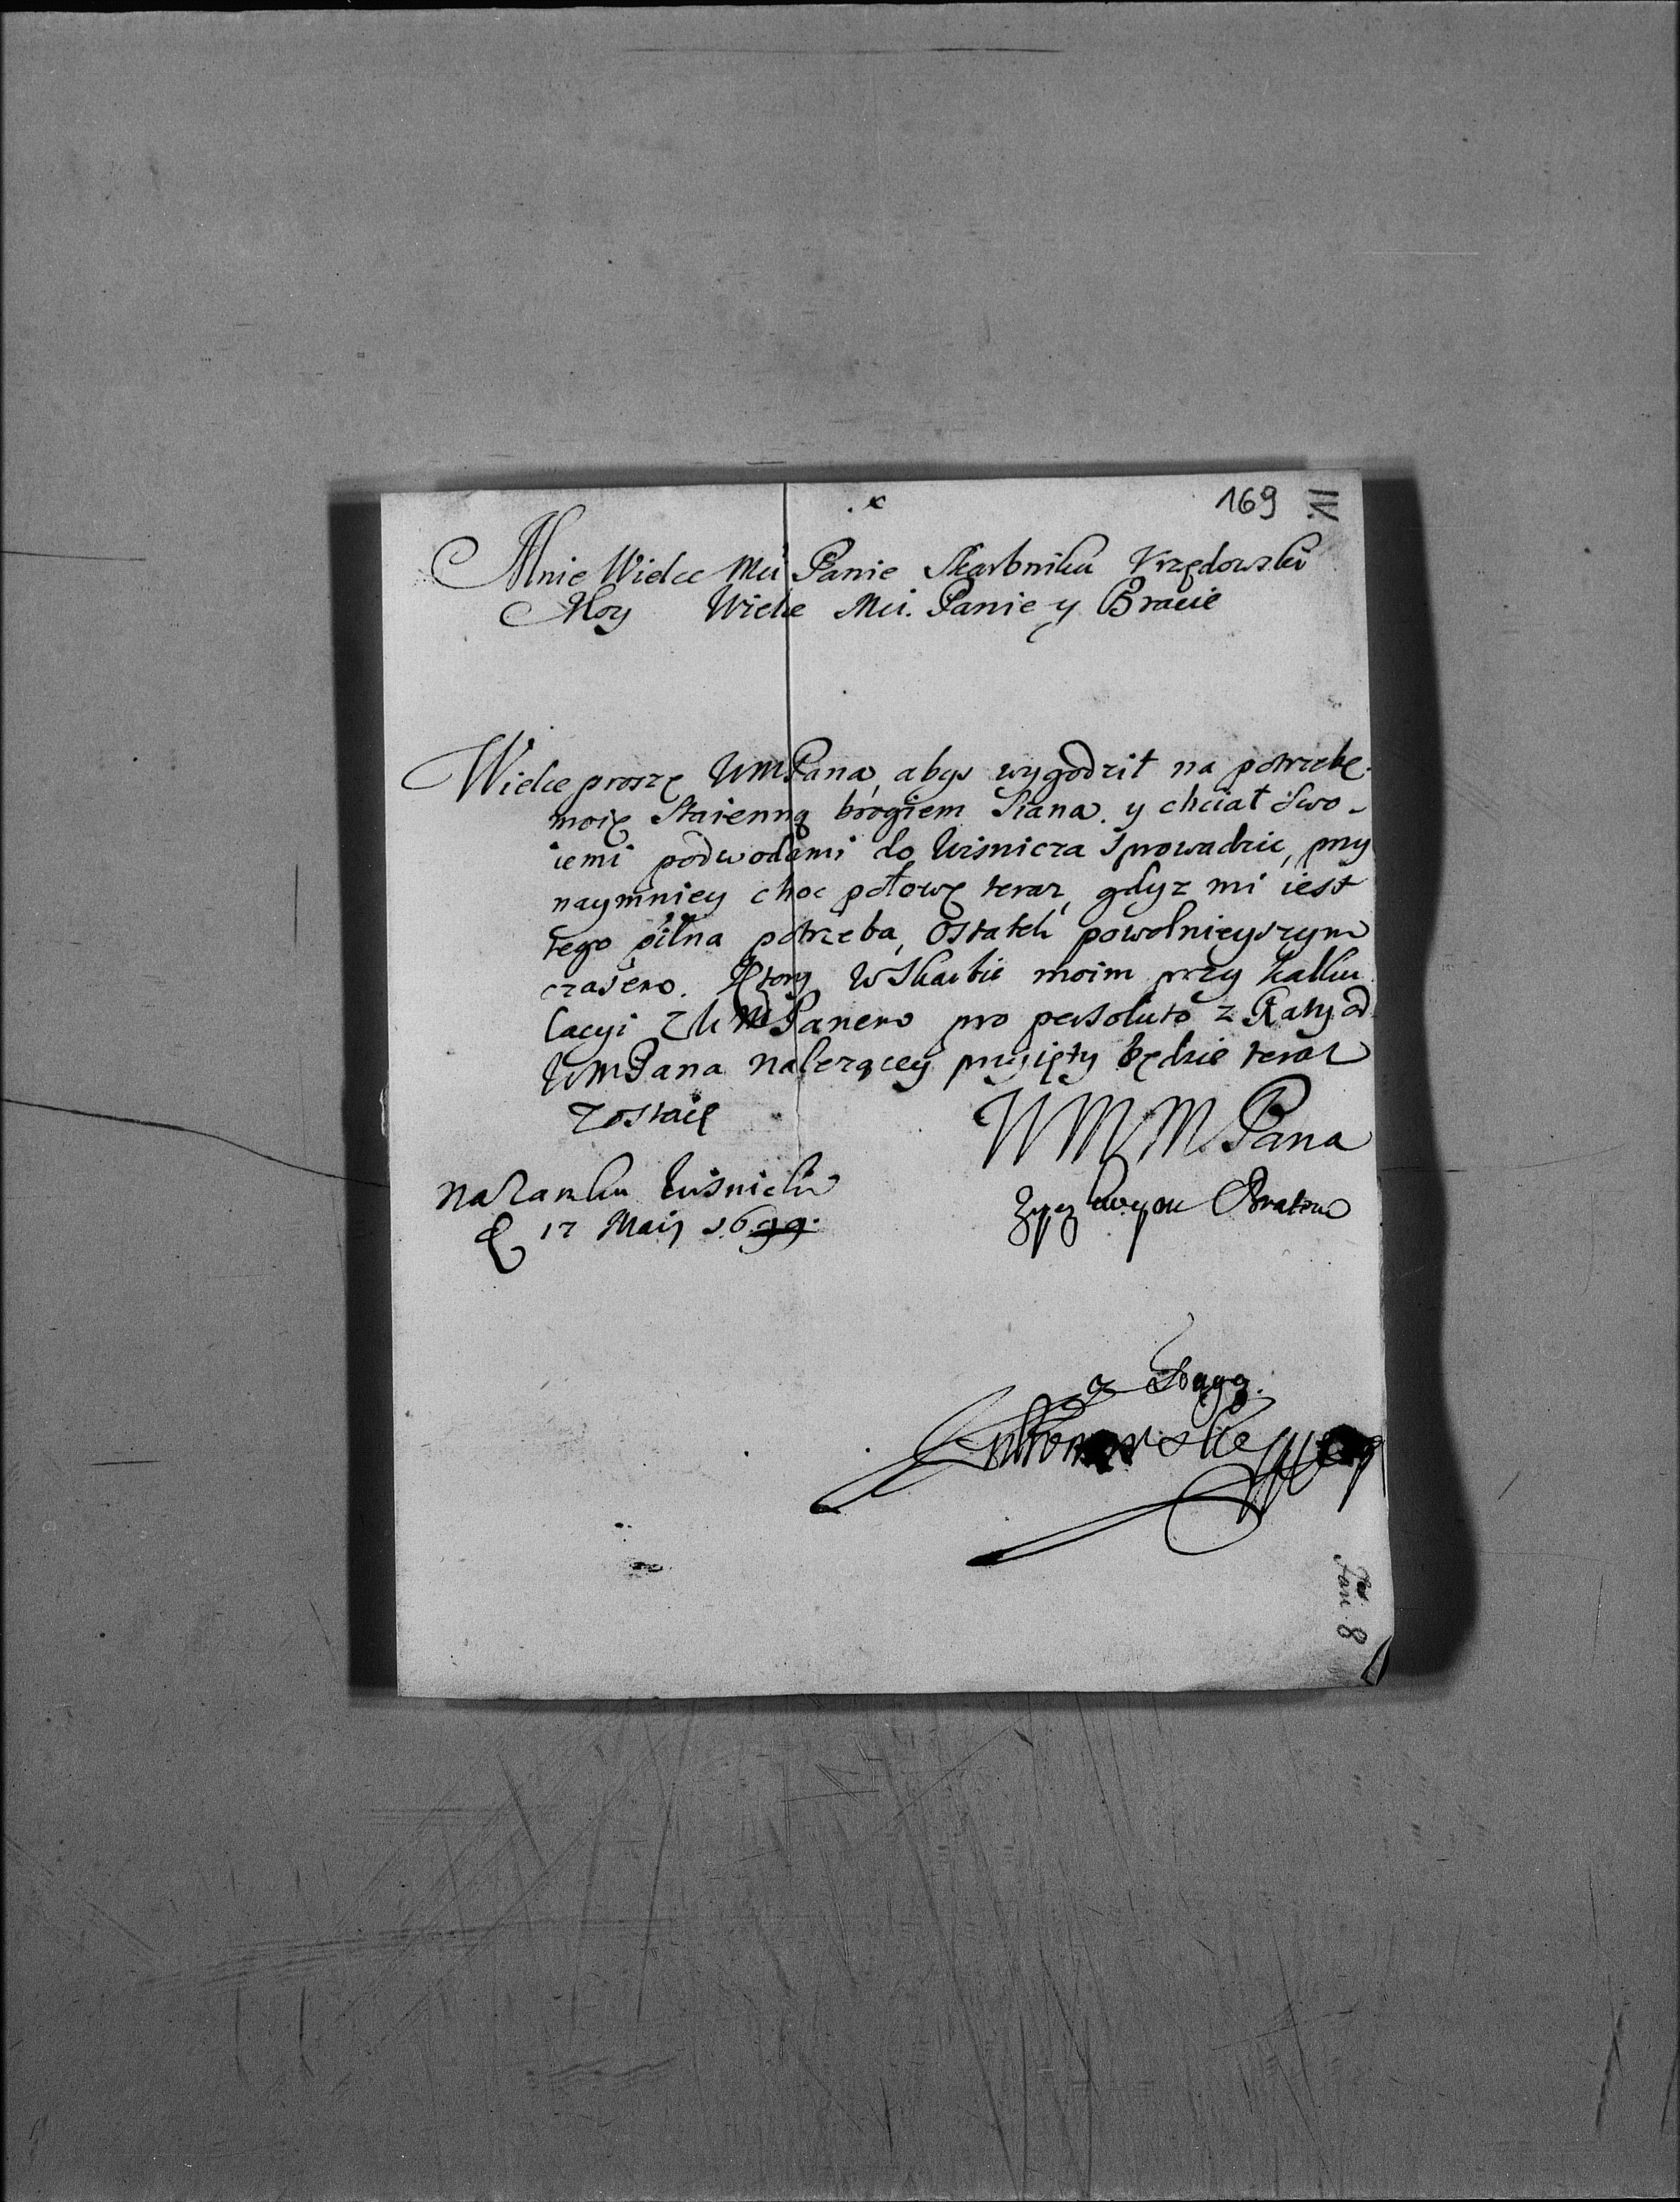 169
VI
Mnie Wielce Mci Panie Skarbniku Vrzędowski
Moy Wielce Mci. Panie y Bracie
Wielce proszę WMPana, abys wygodził na potrzebę
moię Staienną brogiem Siana. y chciał swo-
iemi podwodami do Wisnicza Sprowadzic, przy
naymniey choc połowę teraz, gdyz mi iest
tego pilna potrzeba, Ostatek powolnieyszym
czasem. Ktory w Skarbie moim przy kalku
lacyi z WMPanem pro persoluto z Raty od
WMPana nalezącey przyięty będzie teraz
Zostaię
WMM Pana
Zyczliwym Bratem
na Zamku Wisnickim
D 17 Maij 1699.